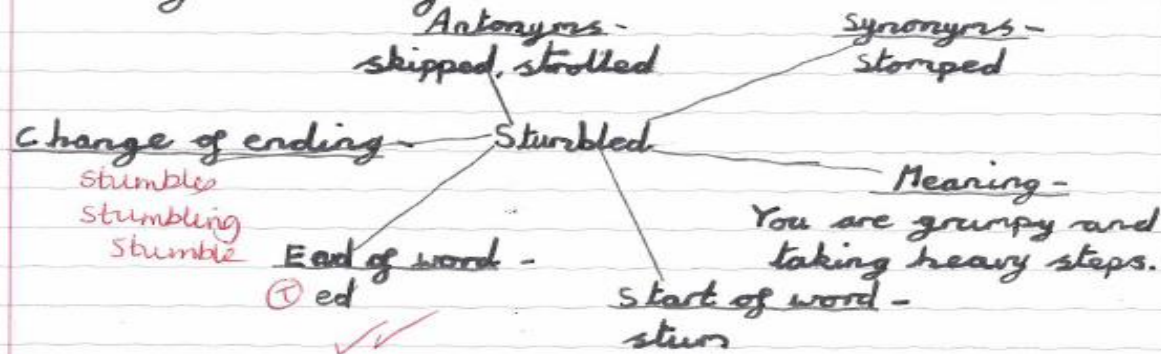 Antonyms -
skipped, strolled
Synonyms -
stomped
Change of ending -
stumbles
stumbling
stumble
Stumbled
Meaning -
You are grumpy and
taking heavy steps.
End of word -
T ed
Start of word -
stum